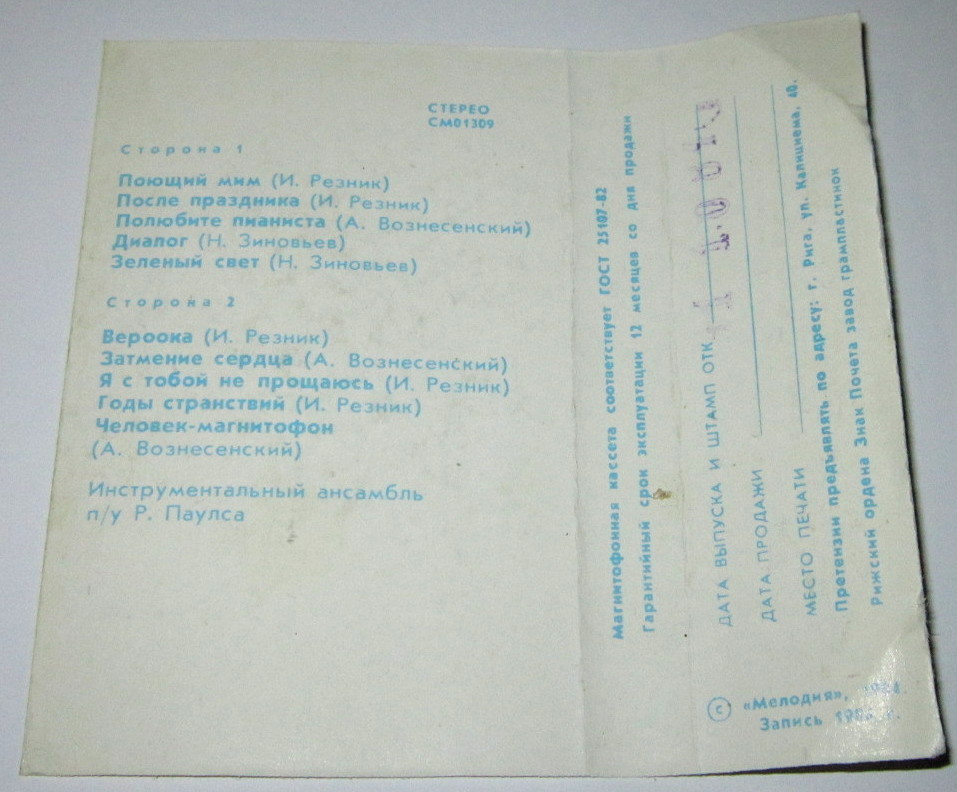 СТЕРЕО
СМ01309
Сторона 1
Поющий мим (И. Резник)
После праздника (И. Резник)
Полюбите пианиста (А. Вознесенский)
Диалог (Н. Зиновьев)
Зеленый свет (Н. Зиновьев)
Сторона 2
Вероока (И. Резник)
Затмение сердца (А. Вознесенский)
Я с тобой не прощаюсь (И. Резник)
Годы странствий (И. Резник)
Человек-магнитофон
(А. Вознесенский)
Инструментальный ансамбль
п/у Р. Паулса
Магнитофонная кассета соответствует ГОСТ 25107-82
Гарантийный срок эксплуатации 12 месяцев со дня продажи
ДАТА ВЫПУСКА И ШТАМП ОТК
ДАТА ПРОДАЖИ
МЕСТО ПЕЧАТИ
Претензии предъявлять по адресу: г. Рига, ул. Калнциема, 40.
Рижский ордена Знак Почета завод грампластинок
© «Мелодия»,
Запись г.